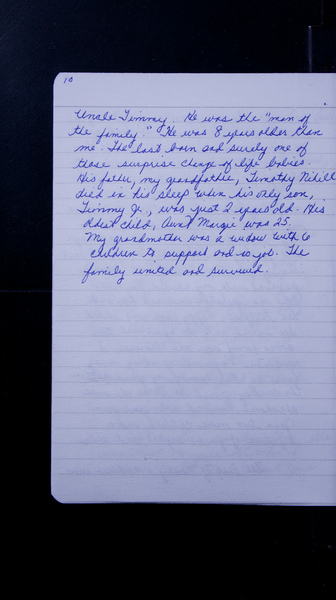 10
Uncle Timmy. He was the "man of
the family." He was 8 years older than
me. The last born and surely one of
those surprise change of life babies.
His father, my grandfather, Timothy Nihill
died in his sleep when his only son,
Timmy Jr, was just 2 years old. His
oldest child, Aunt Margie was 25.
My grandmother was a widow with 6
children to support and no job. The
family united and survived.